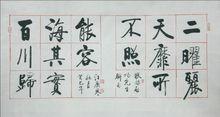 二曜麗
天靡所
不照
百川歸
海其實
能容